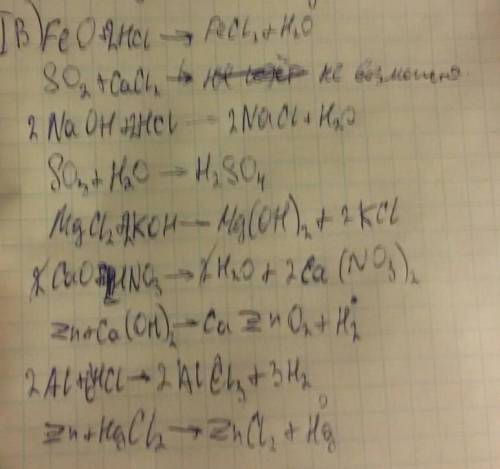 IB) FeO + 2HCl → FeCl2 + H2O
SO2 + CaCl2 → не возможно.
2NaOH + 2HCl — 2NaCl + H2O
SO3 + H2O → H2SO4
MgCl2 + 2KOH — Mg(OH)2 + 2KCl
CaO + HNO3 → H2O + 2Ca(NO3)2
Zn + Ca(OH)2 → CaZnO2 + H2
2Al + 6HCl → 2AlCl3 + 3H2
Zn + HgCl2 → ZnCl2 + Hg